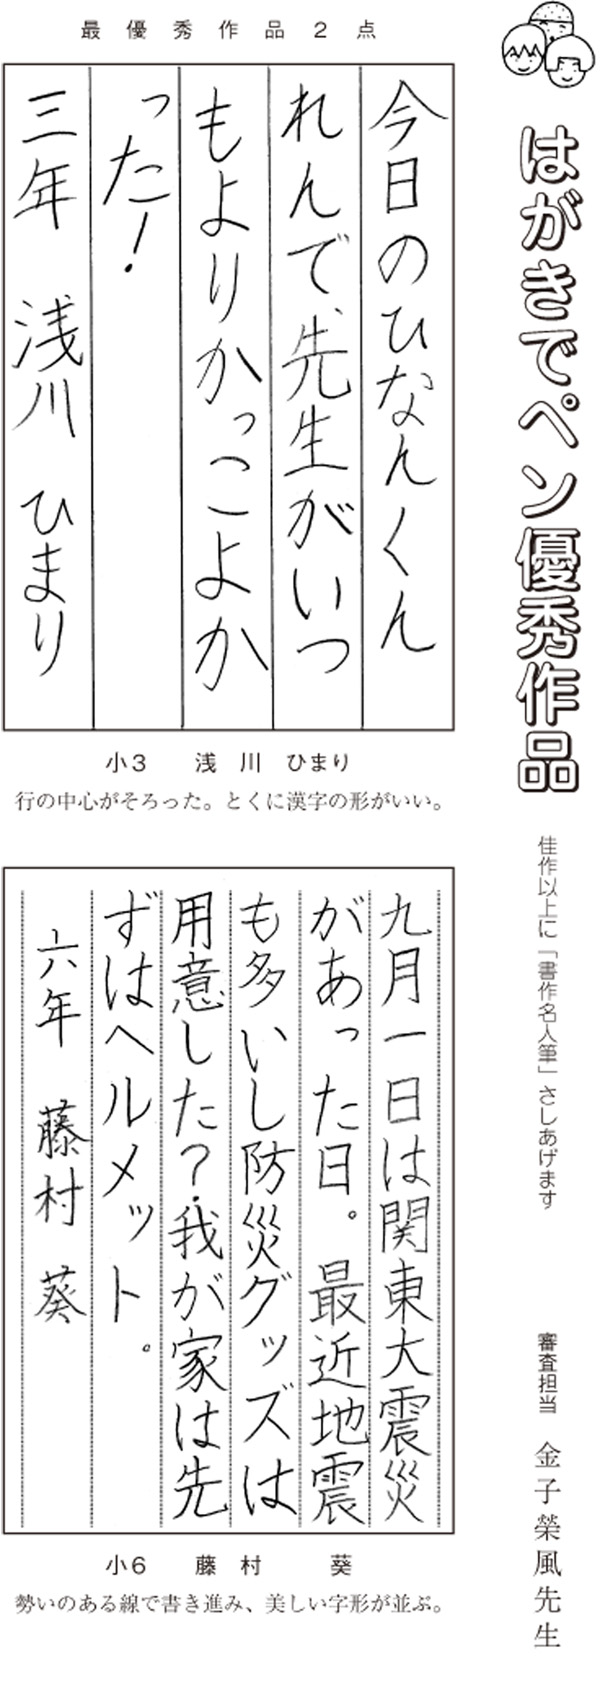 はがきでペン優秀作品
佳作以上に「書作名人筆」さしあげます
審査担当　金子榮風先生
最優秀作品2点
今日のひなんくん
れんで、先生がいつ
もよりかっこよか
った！
三年　浅川　ひまり
小3　浅川　ひまり
行の中心がそろった。とくに漢字の形がいい。
九月一日は関東大震災
があった日。最近地震
も多いし防災グッズは
用意した？我が家は先
ずはヘルメット。
六年　藤村　葵
小6　藤村　葵
勢いのある線で書き進み、美しい字形が並ぶ。